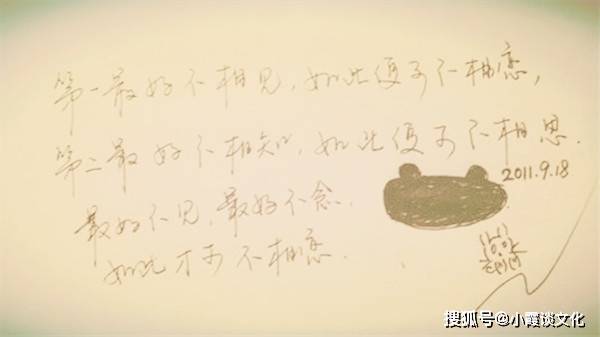 第一最好不相见,如此便可不相恋,
第二最好不相知,如此便可不相思.
2011.9.18
最好不见,最好不念.
如此才可不相恋.
搜狐号@小霞谈文化